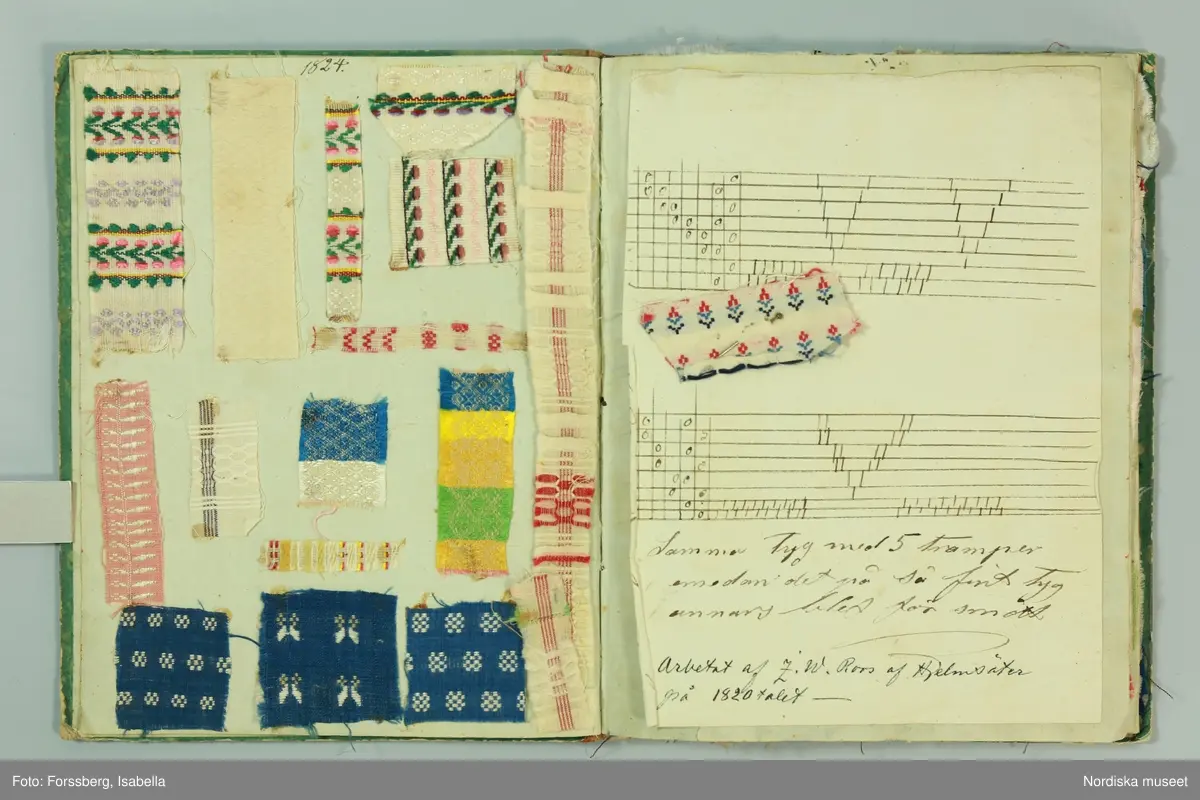 1824.
Samma Tyg med 5 tramper
emedan det på så fint tyg
annars blef för smått
Arbetat af J. W. Roos af Hjelmsäter
på 1820 talet —
Foto: Forssberg, Isabella
Nordiska museet